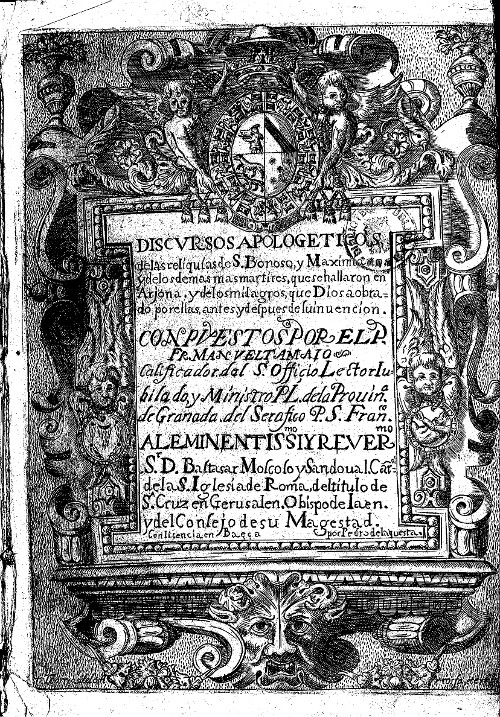 DISCVRSOS APOLOGETICOS
de las reliquias de S. Bonoso, y Maximiano
y de los demas martires, que se hallaron en
Arjona, y de los milagros, que Dios a obra-
do por ellas, antes y despues de su inuencion.
CONPVESTOS POR EL P.
FR. MANVEL TAMAIO
Calificador dal S. Officio Lector Iu-
bilado, y Ministro PL. de la Prouin.ª
de Granada. del Serafico P. S. Fran.co
AL EMINENTISSI.mo Y REVER.mo
S.r D. Baltasar Moscoso y Sandoual Car-
de la S. Iglesia de Roma, del titulo de
S. Cruz en Gerusalen, Obispo de Iaen.
y del Consejo de su Magestad.
Con licencia en Baeça por Pedro de la Cuesta.